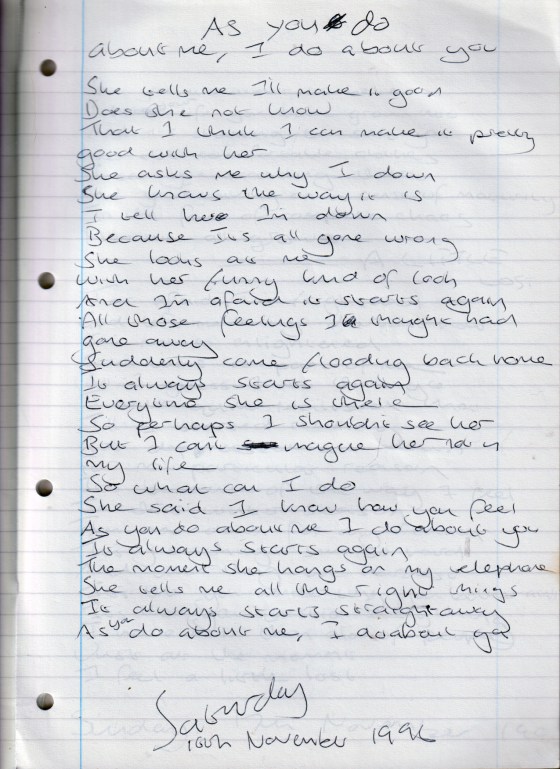 As you do
about me, I do about you
She tells me I'll make it good
Does she not know
That I think I can make it pretty
good with her
She asks me why I down
She knows the way it is
I tell her I'm down
Because It's all gone wrong
She looks at me
with her funny kind of look
And I'm afraid it starts again
All those feelings I thought had
gone away
Suddenly come flooding back home
It always starts again
Everytime she is there
So perhaps I shouldn't see her
But I can't imagine her not in
my life
So what can I do
She said I know how you feel
As you do about me I do about you
It always starts again
The moment she hangs on my telephone
She tells me all the right things
It always starts straight away
As you do about me, I do about you
Saturday
November 1996